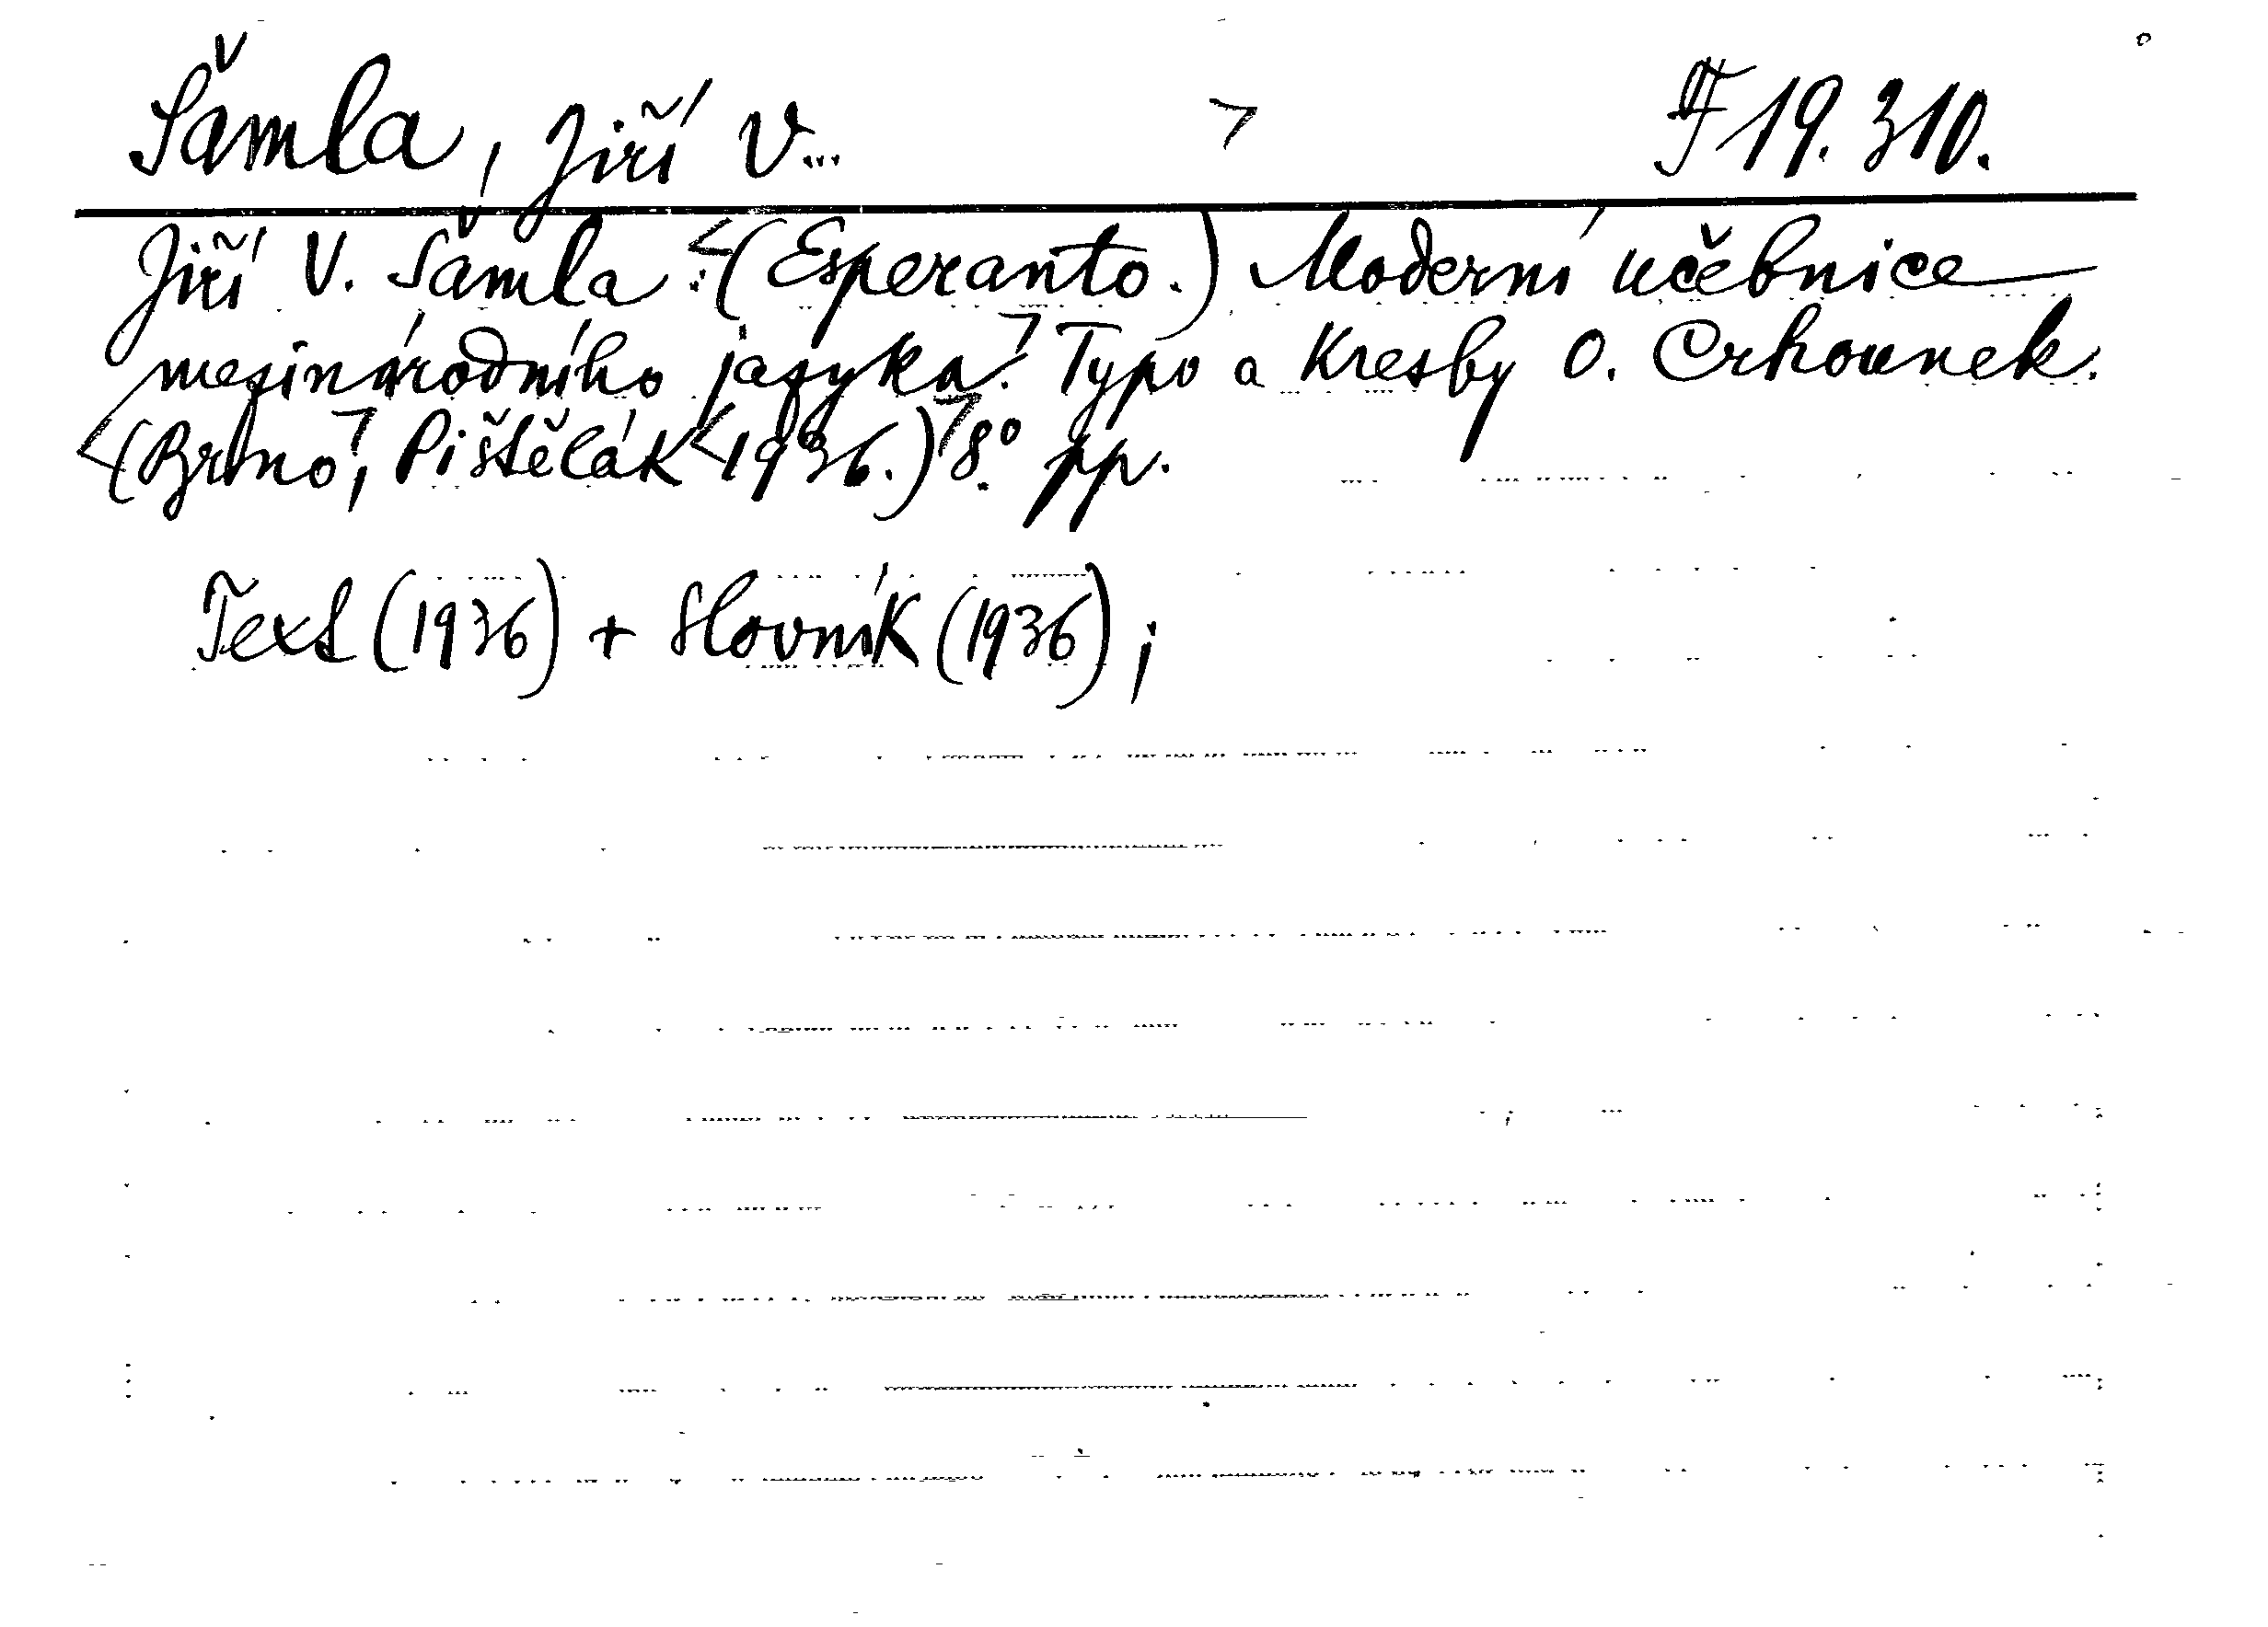 Šámla, Jiří V... > F 19.310.
Jiří V. Šámla: <(Esperanto.) Moderní učebnice
mezinárodního jazyka.> Typo a kresby O. Crhounek.
<(Brno>, Pištělák <1936.)> 8°. pp.
Text (1936) + Slovník (1936);